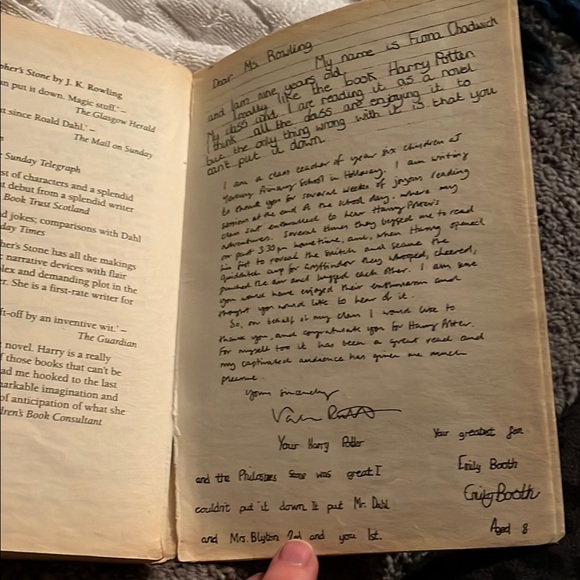 pher's Stone by J. K. Rowling
n put it down. Magic stuff.' –
The Glasgow Herald
n since Roald Dahl.' –
The Mail on Sunday
Sunday Telegraph
st of characters and a splendid
t debut from a splendid writer
Book Trust Scotland
d jokes; comparisons with Dahl
day Times
pher's Stone has all the makings
narrative devices with flair
lex and demanding plot in the
er. She is a first-rate writer for
ft-off by an inventive wit.' –
The Guardian
novel. Harry is a really
f those books that can't be
ad me hooked to the last
arkable imagination and
of anticipation of what she
ldren's Book Consultant
Dear Ms Rowling
My name is Fiona Chadwick
and I am nine years old.
I really like the book Harry Potter.
My class and I are reading it as a novel
I think all the class are enjoying it to
but the only thing wrong with it is that you
can't put it down.
I am a class teacher of year six children at
Yerbury Primary School in Holloway. I am writing
to thank you for several weeks of joyous reading
sessions at the end of the school day, where my
class sat enthralled to hear Harry Potter's
adventures. Several times they begged me to read
on past 3:30 pm hometime, and, when Harry opened
his fist to reveal the snitch and secure the
Quidditch cup for Gryffindor they whooped, cheered,
punched the air and hugged each other. I am sure
you would have enjoyed their enthusiasm and
thought you would like to hear of it.
So, on behalf of my class I would like to
thank you, and congratulate you for Harry Potter.
For myself too it has been a great read and
my captivated audience has given me much
pleasure.
Yours sincerely
Your Harry Potter
and the Philosphers Stone was great I
couldn't put it down I put Mr. Dahl
and Mrs. Blyton 2nd and you 1st.
Your greatest fan
Emily Booth
Emily Booth
Aged 8